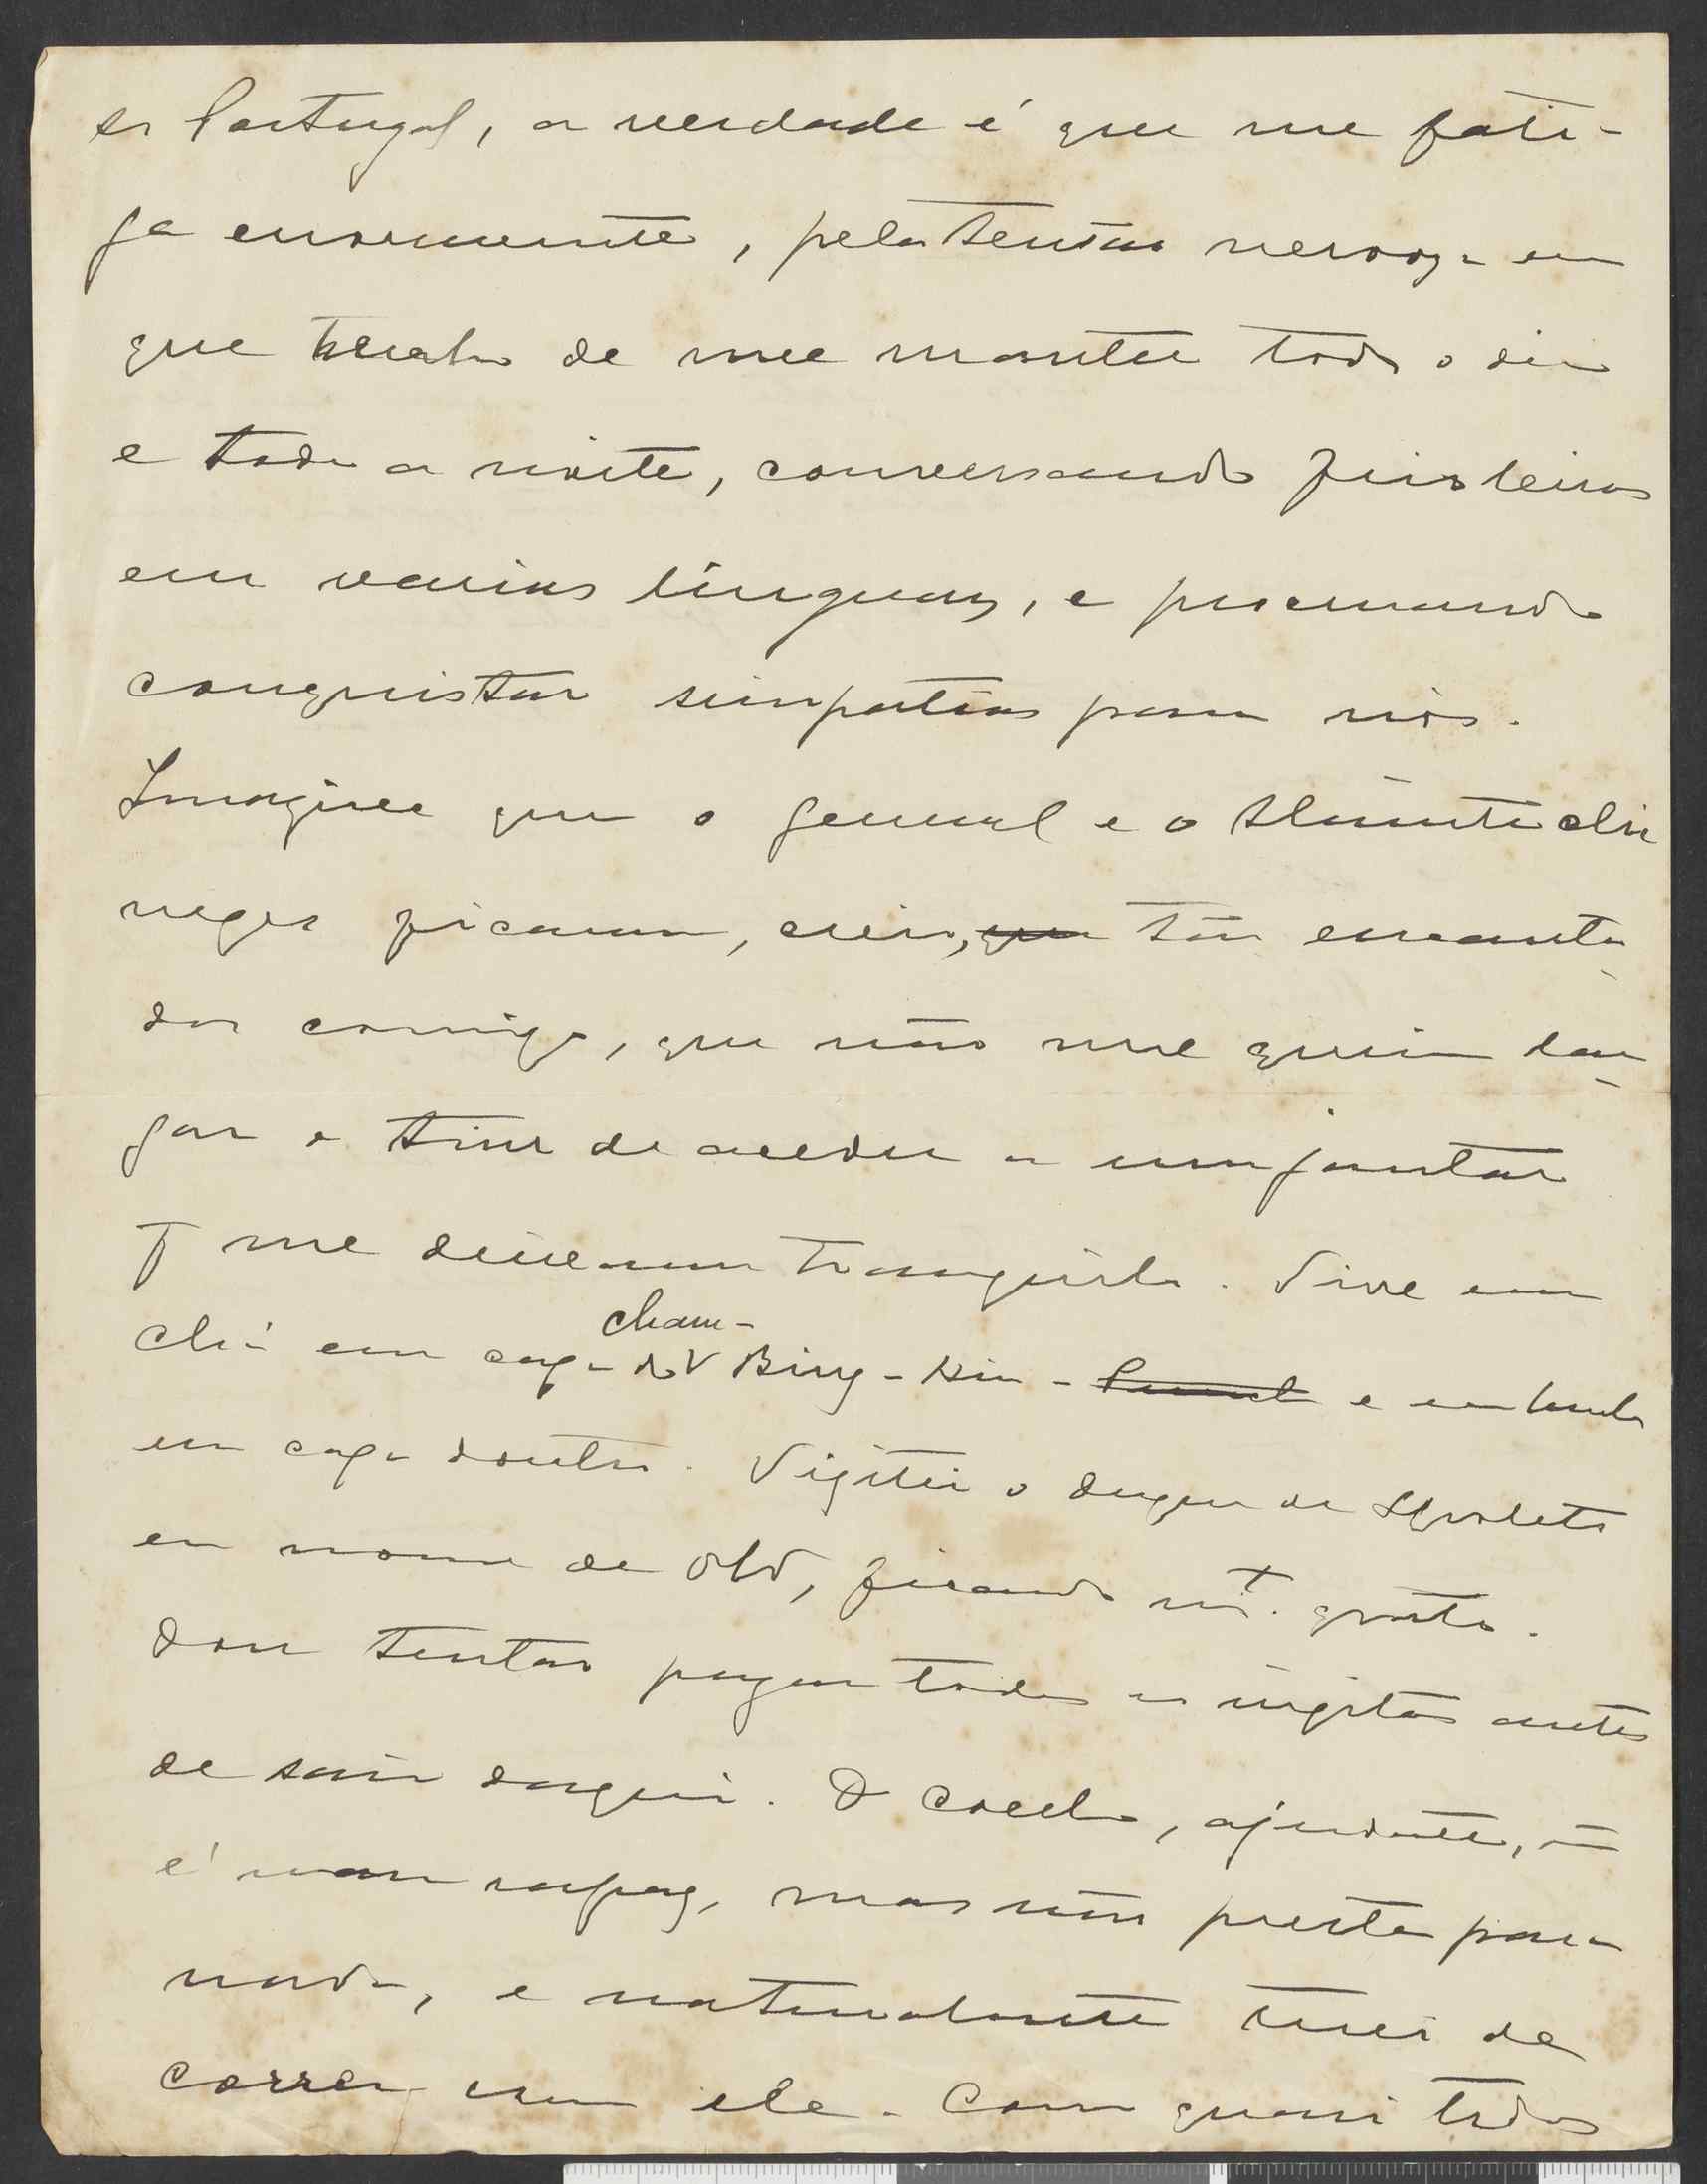 es Portugal, a verdade é que me fati-
ga enormemente, pela tensão nervoza em
que tenho de me manter todo o dia
e toda a noite, conversando frioleiras
em varias linguas, e procurando
conquistar simpatias para nós.
Imagine que o general e o Almirante chi
nezes ficaram, creio, que tão encanta-
dos comigo, que não me queriam lar-
gar e tive de aceder a um jantar
q me deixaram tranquilo. Tive um
chá em caza do cham- Bing-Kin- e um
em caza doutro. Vizitei o duque de Spoleto
em nome de Old, ficando mt. grato.
Vou tentar pagar todas as vizitas antes
de sair daqui. O Coelho, ajudante, n
é mau rapaz, mas não presta para
nada, e naturalmente terei de
correr com ele. Com quasi todos